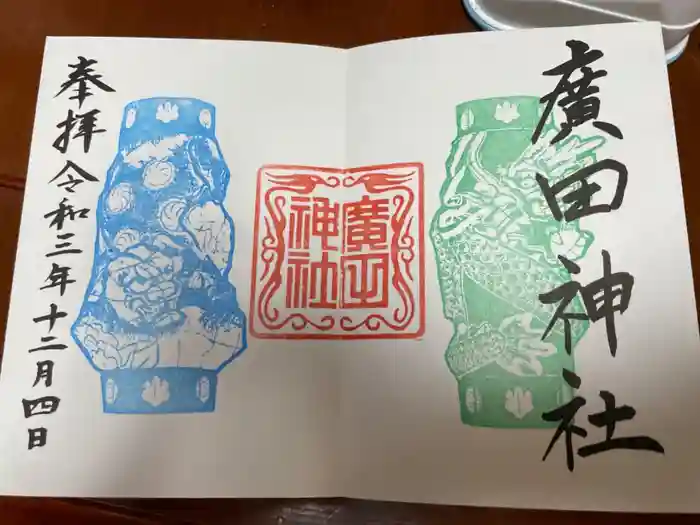 廣田神社
廣田
神社
奉拝 令和三年十二月四日